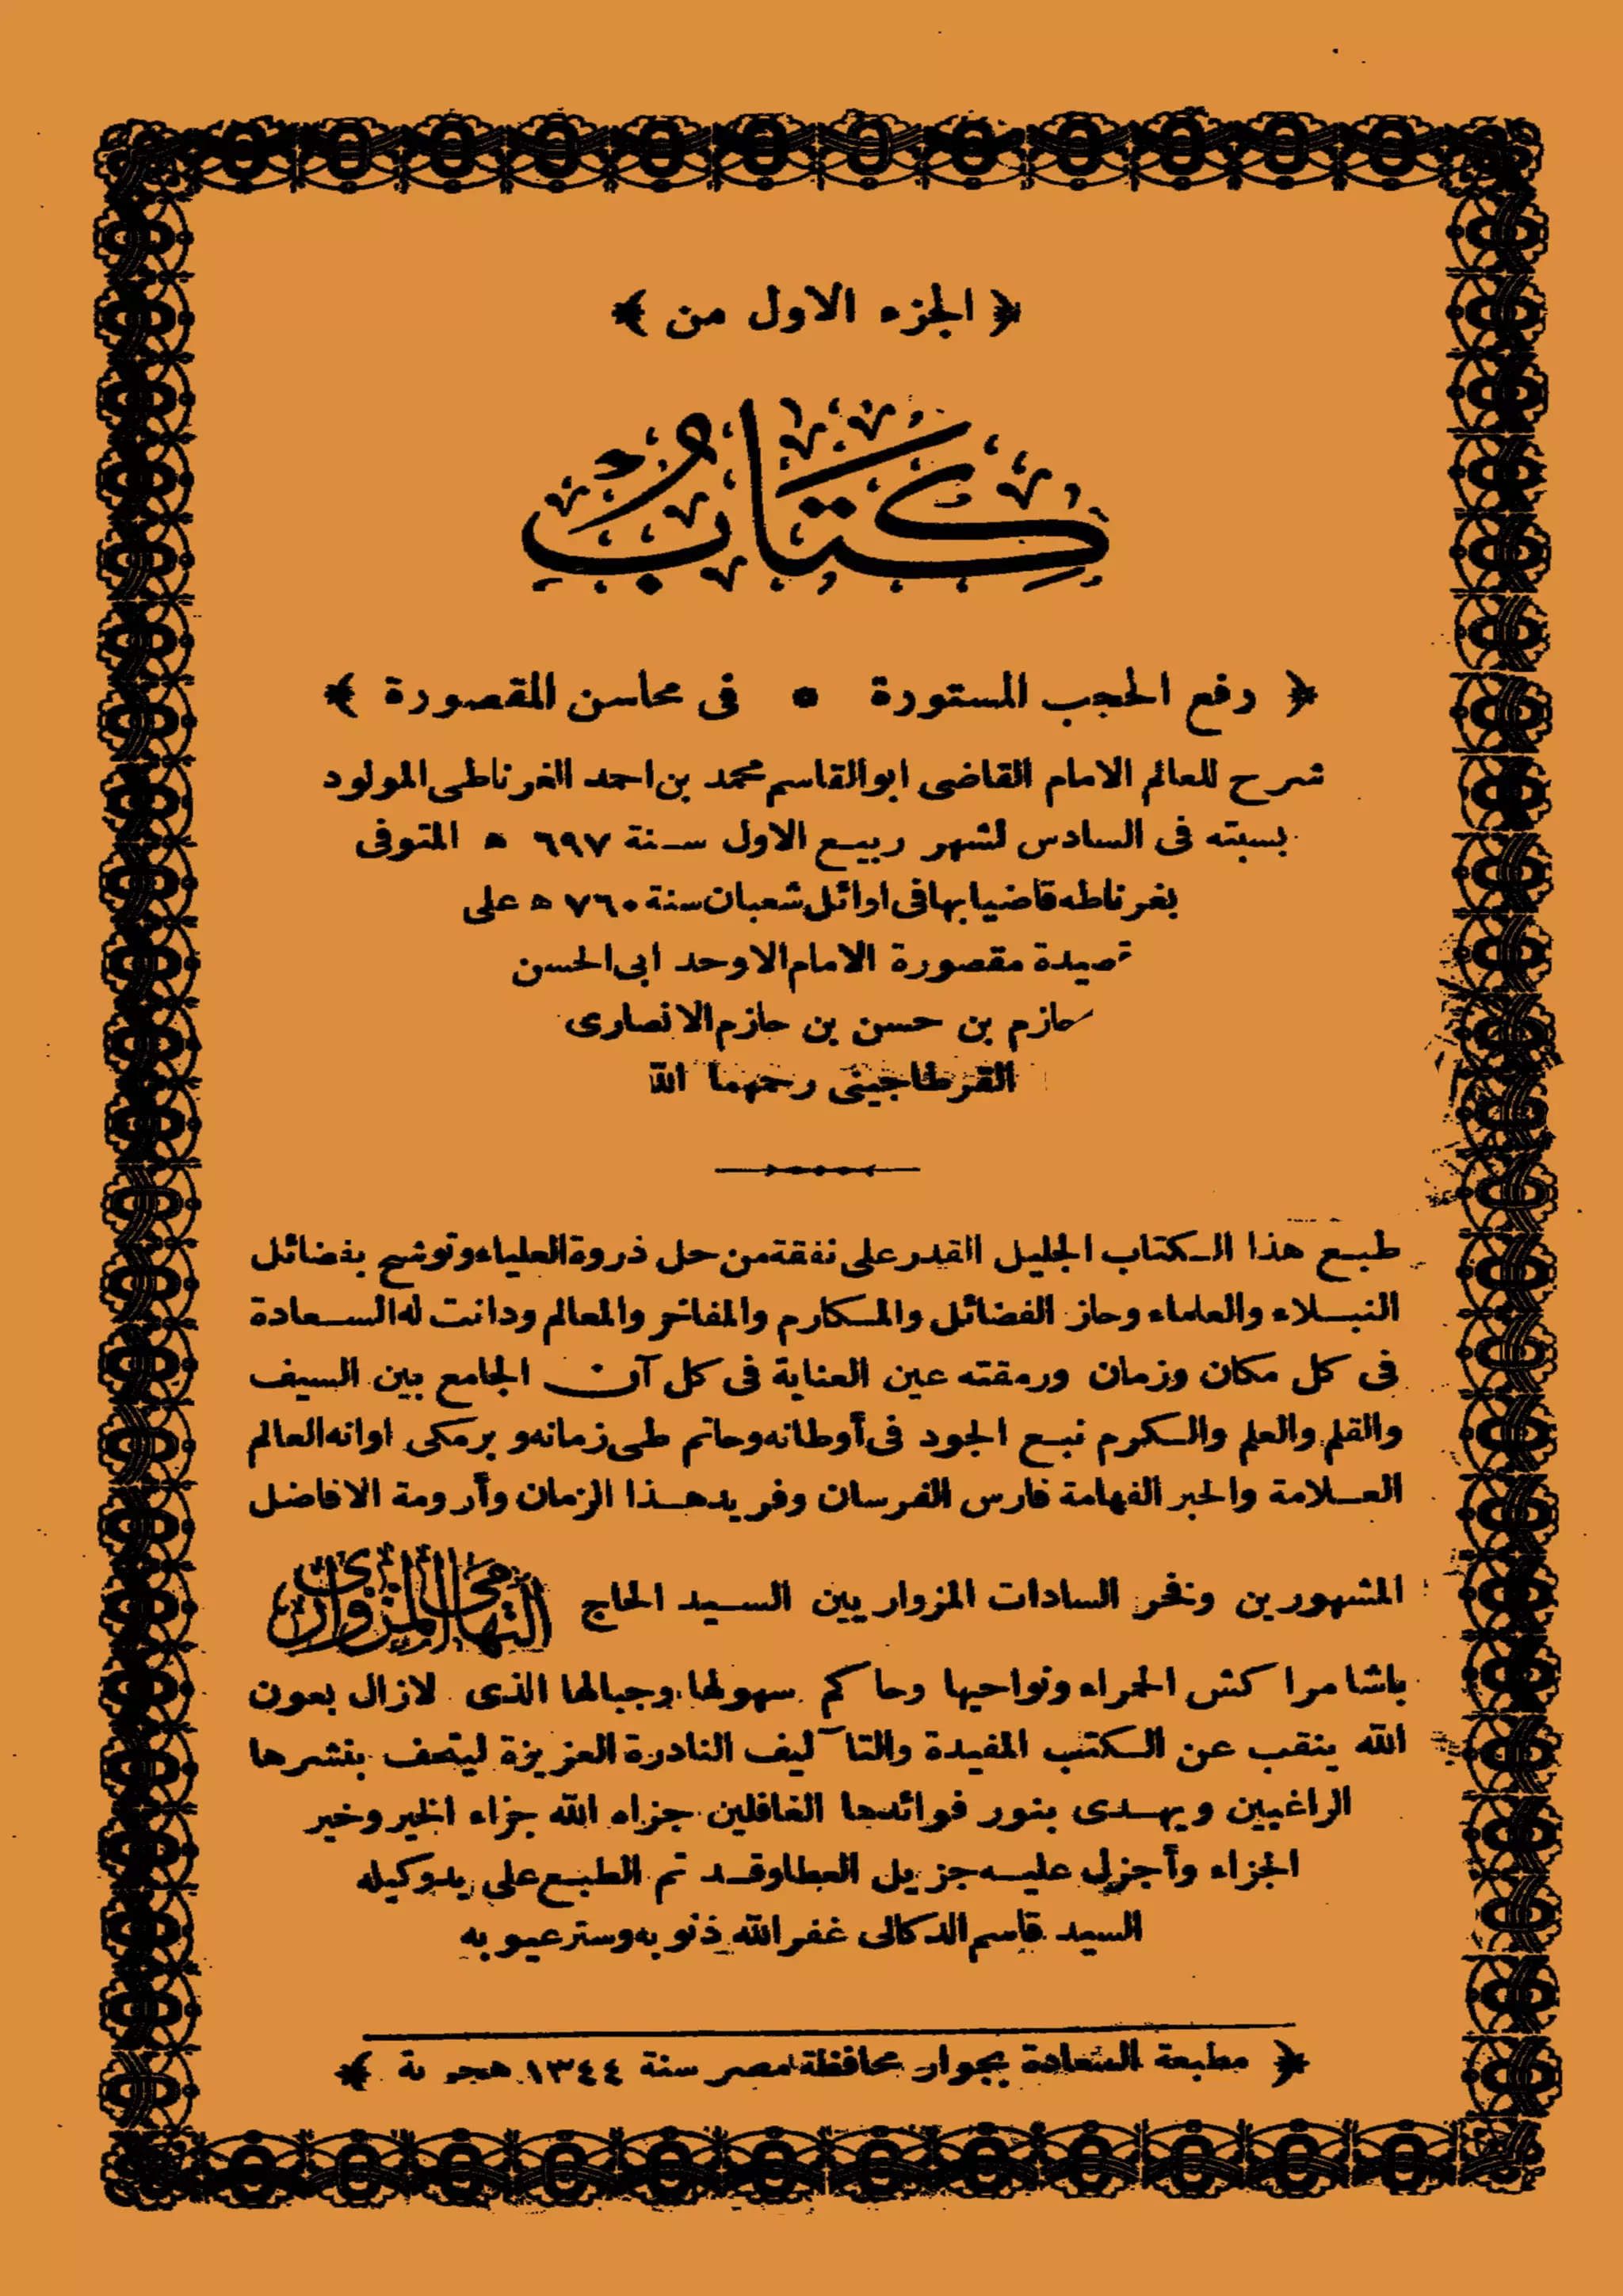 ﴿ الجزء الاول من ﴾
كِتَابُ
﴿ رفع الحجب المستورة * فى محاسن المقصورة ﴾
شرح للعالم الامام القاضى ابو القاسم محمد بن احمد الغرناطى المولود
بسبته فى السادس لشهر ربيع الاول سنة ٦٩٧ ه المتوفى
بغرناطه قاضيا بها فى اوائل شعبان سنة ٧٦٠ ه على
قصيدة مقصورة الامام الاوحد ابى الحسن
حازم بن حسن بن حازم الانصارى
القرطاجينى رحمهما الله
طبع هذا الكتاب الجليل القدر على نفقة من حل ذروة العلياء وتوشح بفضائل
النبلاء والعلماء وحاز الفضائل والمكارم والمفاخر والمعالم ودانت له السعادة
فى كل مكان وزمان ورمقته عين العناية فى كل آن الجامع بين السيف
والقلم والعلم والكرم نبع الجود فى أوطانه وحاتم طى زمانه و برمكى اوانه العالم
العلامة والحبر الفهامة فارس الفرسان وفريد هذا الزمان وأرومة الافاضل
المشهورين وفخر السادات المزواريين السيد الحاج التهامى المزوارى
باشا مراكش الحمراء ونواحيها وحاكم سهولها وجبالها الذى لازال بعون
الله ينقب عن الكتب المفيدة والتآليف النادرة العزيزة ليتحف بنشرها
الراغبين ويهدى بنور فوائدها الغافلين جزاه الله جزاء الخير وخير
الجزاء وأجزل عليه جزيل العطا وقد تم الطبع على يد وكيله
السيد قاسم الدكالى غفر الله ذنوبه وستر عيوبه
﴿ مطبعة السعادة بجوار محافظة مصر سنة ١٣٤٤ هجرية ﴾